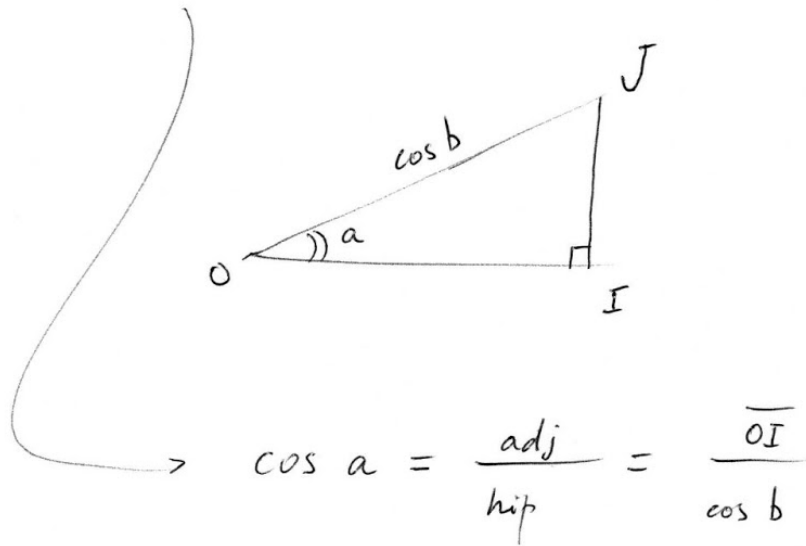 J
cos b
a
O
I
cos a = adj/hip = OI/cos b